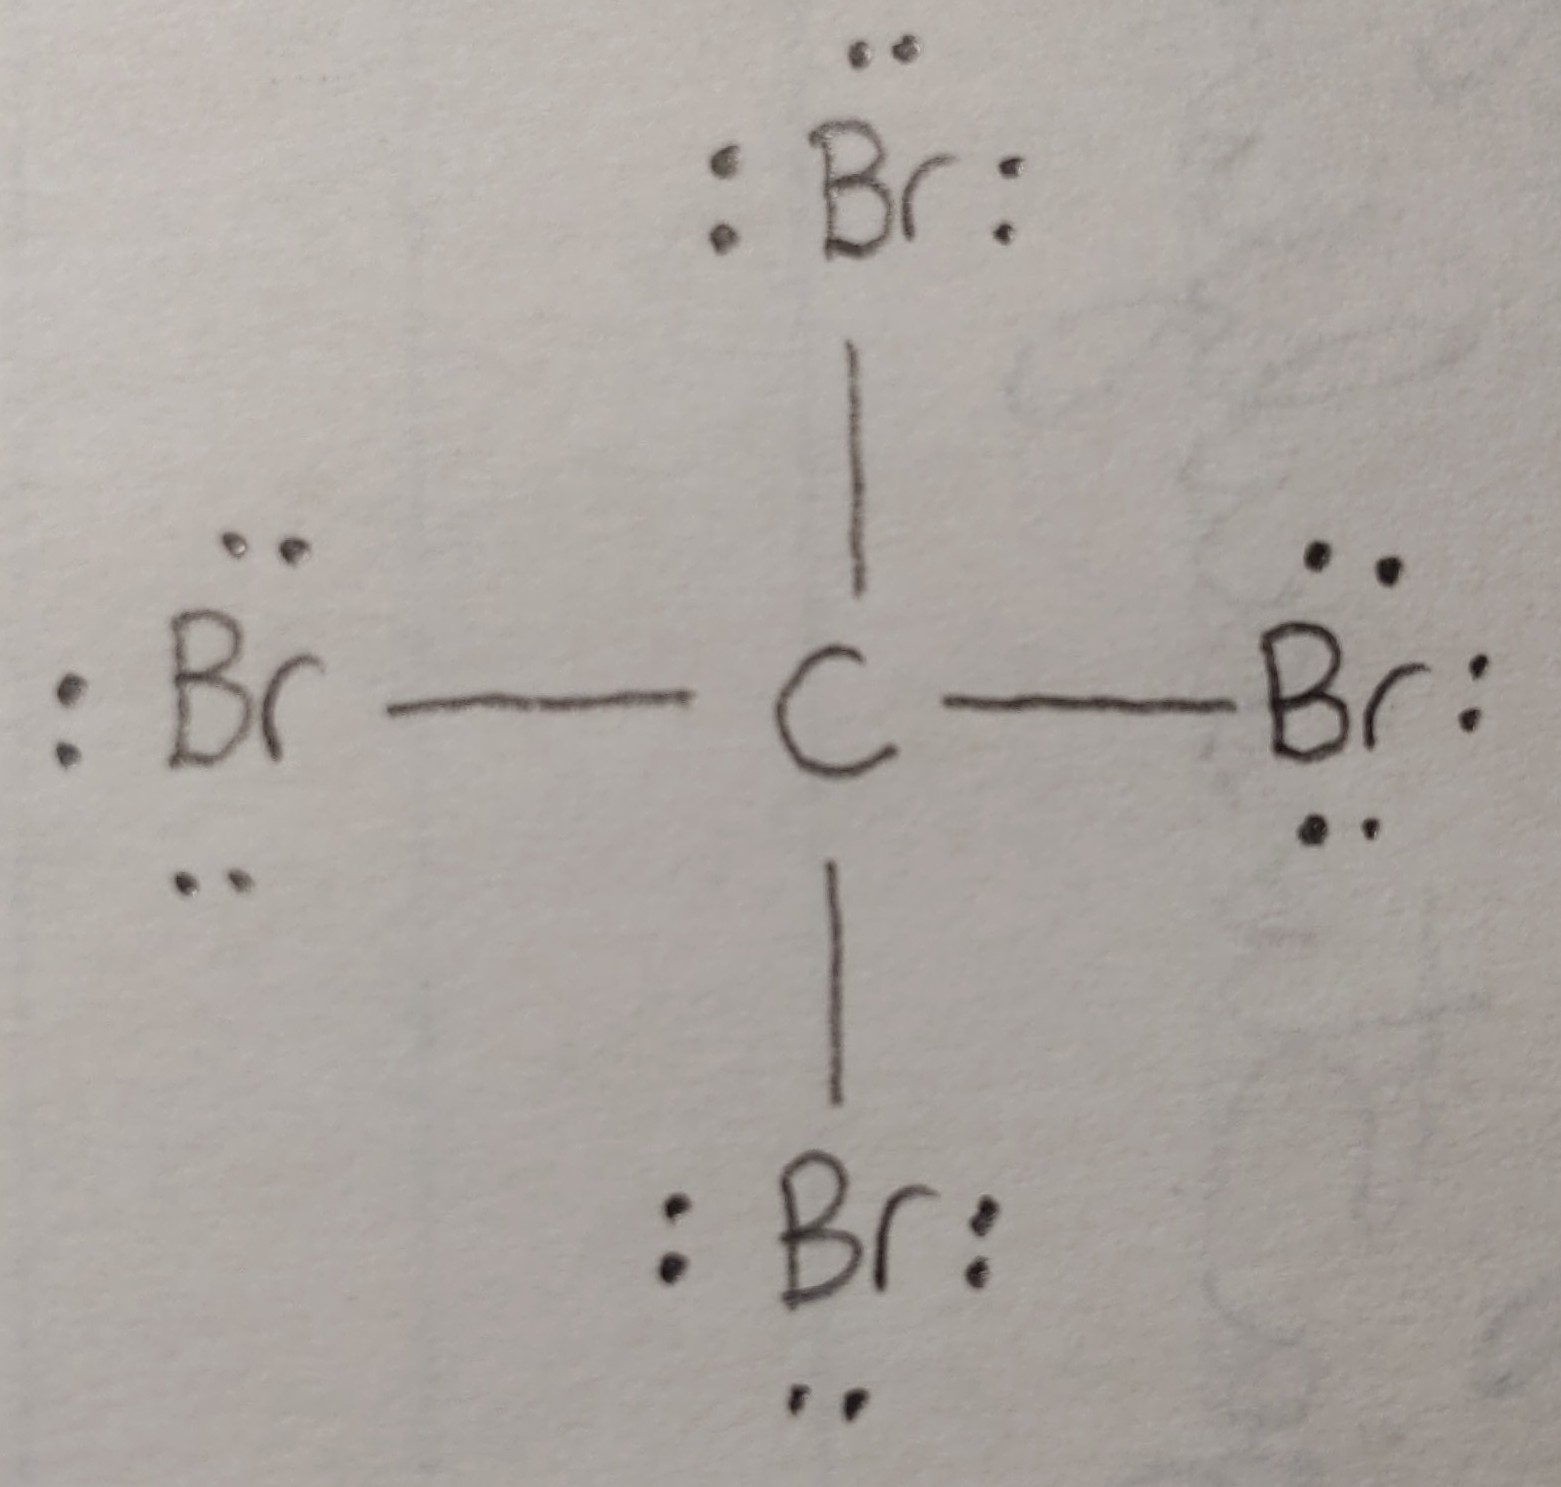 Br
Br C Br
Br